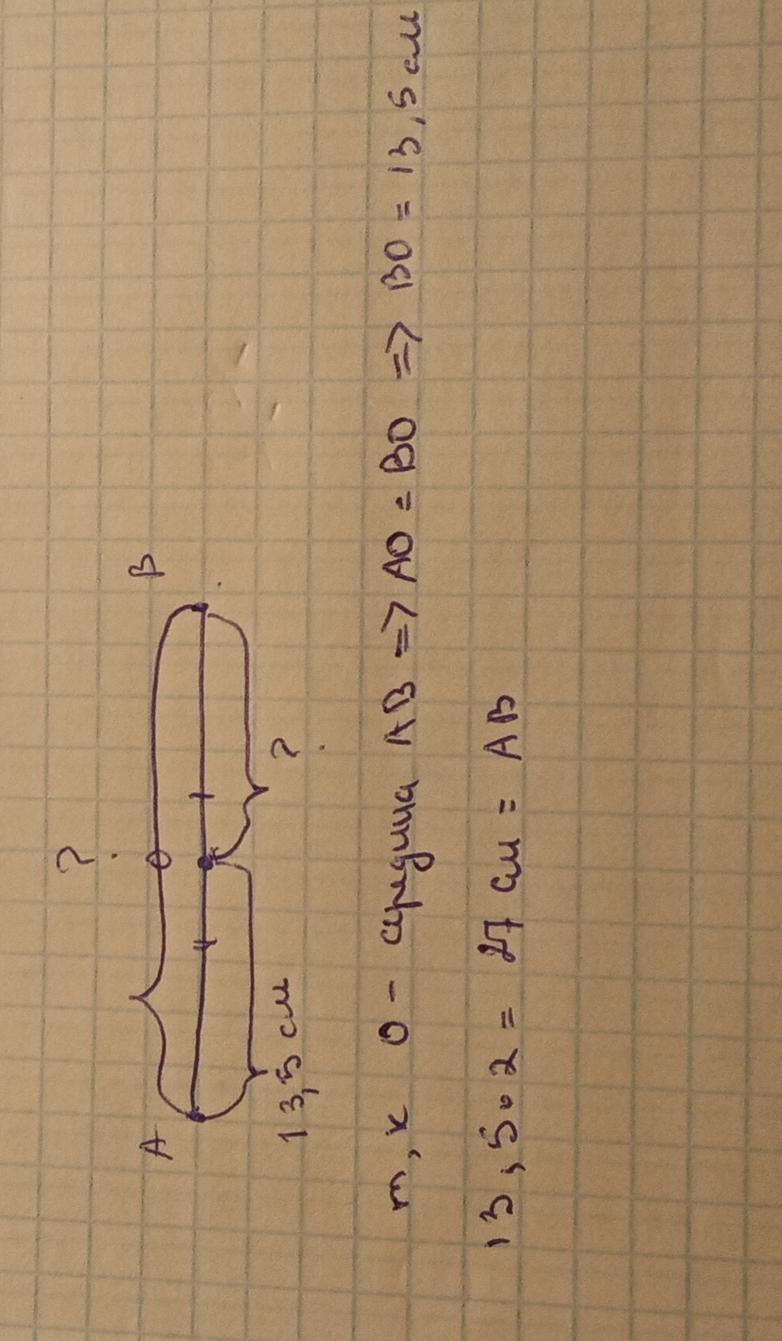 ?
A O B
13,5 см ?
т, к О - середина AB => AO = BO => BO = 13,5 см
13,5 • 2 = 27 см = AB